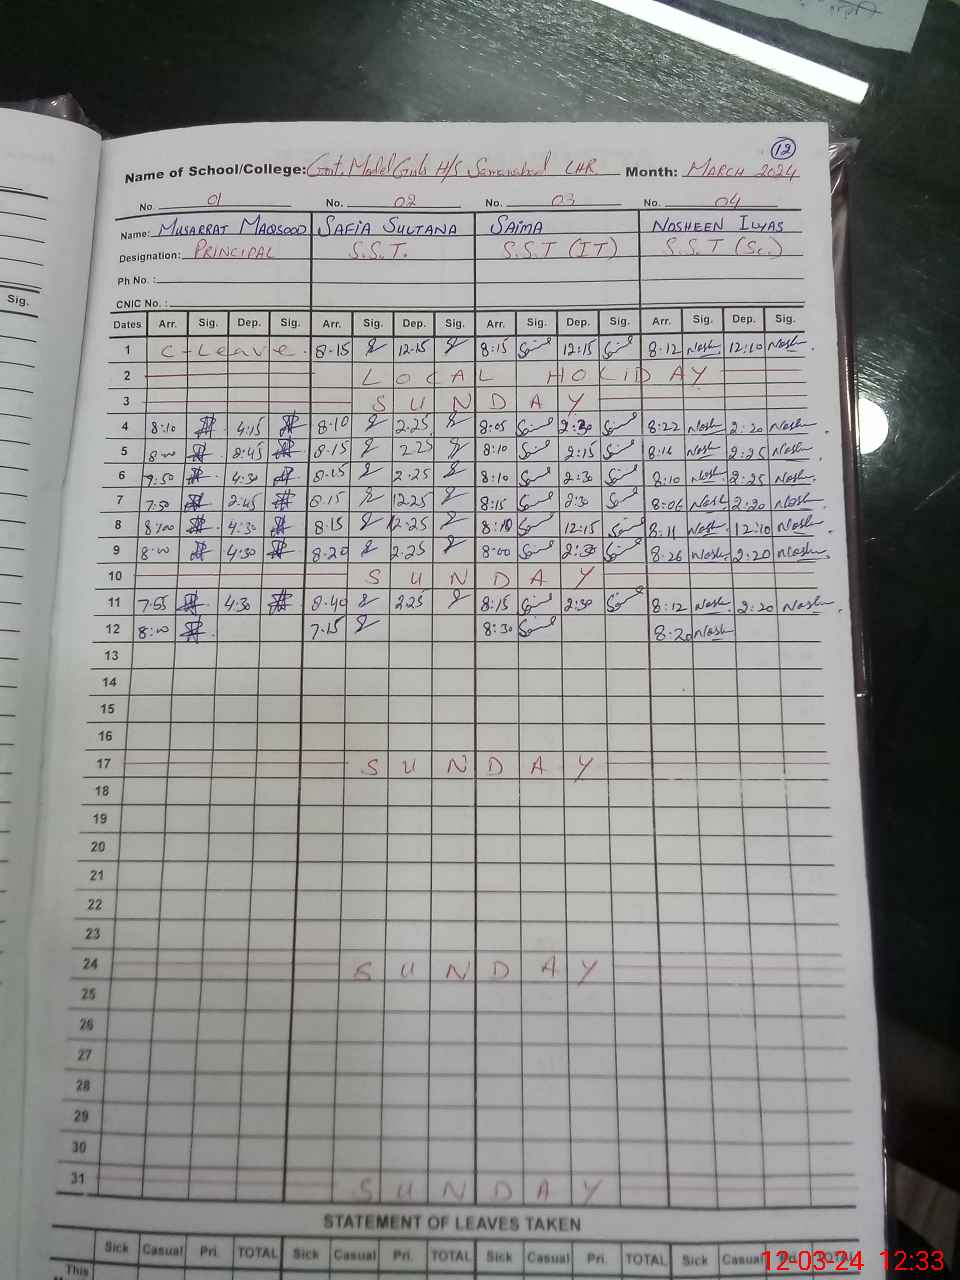 12
Name of School/College: Govt. Model Girls H/S Samanabad LHR Month: MARCH 2024
No. 01 No. 02 No. 03 No. 04
Name: MUSARRAT MAQSOOD SAFIA SULTANA SAIMA NOSHEEN ILYAS
Designation: PRINCIPAL S.S.T. S.S.T (IT) S.S.T (Sc.)
Ph No. :
CNIC No. :
Sig.
Dates Arr. Sig. Dep. Sig. Arr. Sig. Dep. Sig. Arr. Sig. Dep. Sig. Arr. Sig. Dep. Sig.
1 C-Leave. 8-15 12-15 8:15 12:15 8-12 Nosh. 12:10 Nosh.
2 LOCAL HOLIDAY
3 SUNDAY
4 8:10 4:15 8-10 2-25 8:05 2:30 8:22 Nosh 2:20 Nosh.
5 8:00 8:45 8-15 225 8:10 2:15 8:16 Nosh. 2:25 Nosh.
6 7:50 4:30 8-15 2-25 8:10 2:30 8:10 Nosh. 2:25 Nosh.
7 7:50 2:45 8-15 1225 8:15 2:30 8:06 Nosh. 2:20 Nosh.
8 8:00 4:30 8-15 12-25 8:10 12:15 8:11 Nosh. 12:10 Nosh.
9 8:00 4:30 8-20 2-25 8:00 2:30 8:26 Nosh. 2:20 Nosh.
10 SUNDAY
11 7:55 4:30 8-40 225 8:15 2:30 8:12 Nosh. 2:20 Nosh.
12 8:00 7-15 8:30 8:20 Nosh
13
14
15
16
17 SUNDAY
18
19
20
21
22
23
24 SUNDAY
25
26
27
28
29
30
31 SUNDAY
STATEMENT OF LEAVES TAKEN
Sick Casual Pri. TOTAL Sick Casual Pri. TOTAL Sick Casual Pri. TOTAL Sick Casual Pri. TOTAL
This
12-03-24 12:33